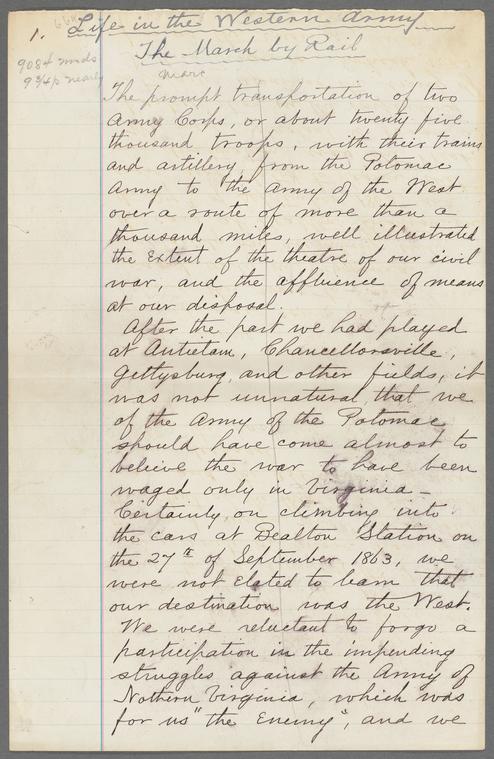 1. Life in the Western Army
The March by Rail
9084 words
9 3/4 p nearly
The prompt transportation of two
Army Corps, or about twenty five
thousand troops, with their trains
and artillery, from the Potomac
Army to the Army of the West
over a route of more than a
thousand miles, well illustrated
the Extent of the theatre of our civil
war, and the affluence of means
at our disposal.
After the part we had played
at Antietam, Chancellorsville,
Gettysburg, and other fields, it
was not unnatural, that we
of the Army of the Potomac,
should have come almost to
believe the war to have been
waged only in Virginia -
Certainly, on climbing into
the cars at Bealton Station on
the 27th of September 1863, we
were not Elated to learn that
our destination was the West.
We were reluctant to forgo a
participation in the impending
struggles against the Army of
Nothern Virginia, which was
for us "the Enemy", and we